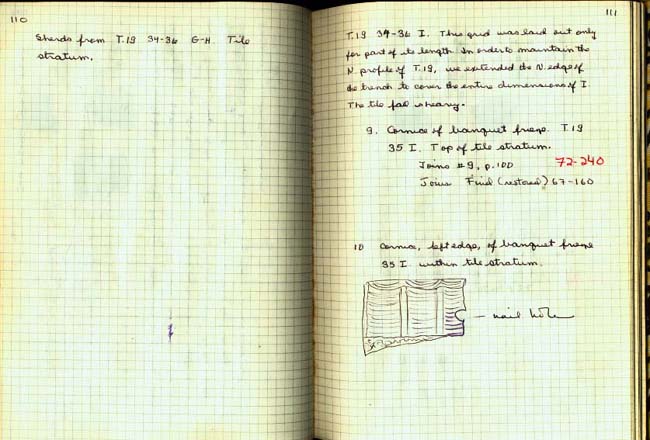 110
Sherds from T.19 34-36 G-H. Tile
stratum.
111
T.19 34-36 I. This grid was laid out only
for part of its length. In order to maintain the
N. profile of T.19, we extended the N. edge of
the trench to cover the entire dimensions of I.
The tile fall is heavy.
9. Cornice of banquet frieze. T.19
35 I. Top of tile stratum.
Joins #9, p.100 72-240
Joins Find (restored) 67-160
10 Cornice, left edge, of banquet frieze
35 I within tile stratum.
— nail hole